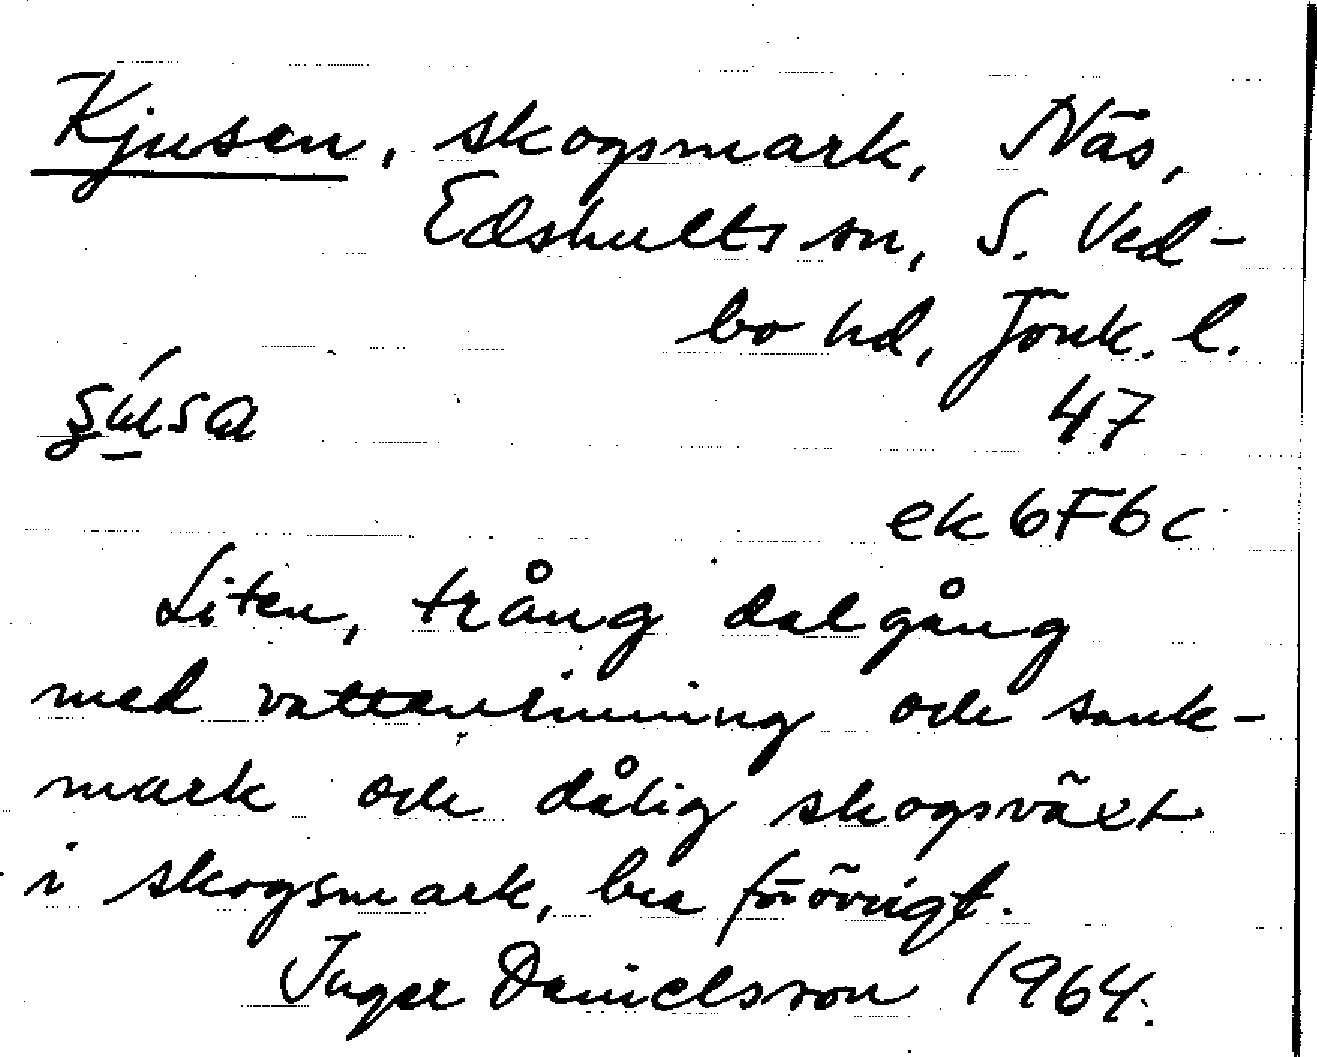 Kjusen, skogsmark, Näs,
Edshults sn, S. Ved-
bo hd, Jönk. l.
47
ek 6F6c
Liten, trång dalgång
med vattenrinning och sank-
mark och dålig skogsväxt
i skogsmark, bra förövrigt.
Inger Danielsson 1964.